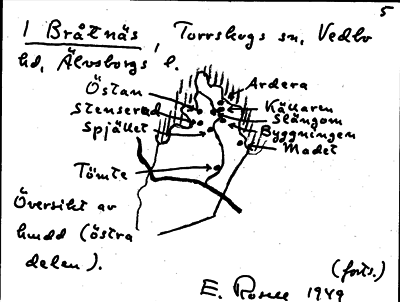 5
1 Bråtnäs, Torrskogs sn, Vedbo
hd, Älvsborgs l.
Östan
Stenserud
Spjället
Ardera
Källaren
Slängom
Byggningen
Madet
Tömte
Översikt av
hmdd (östra
delen).
(forts.)
E. Rosell 1949